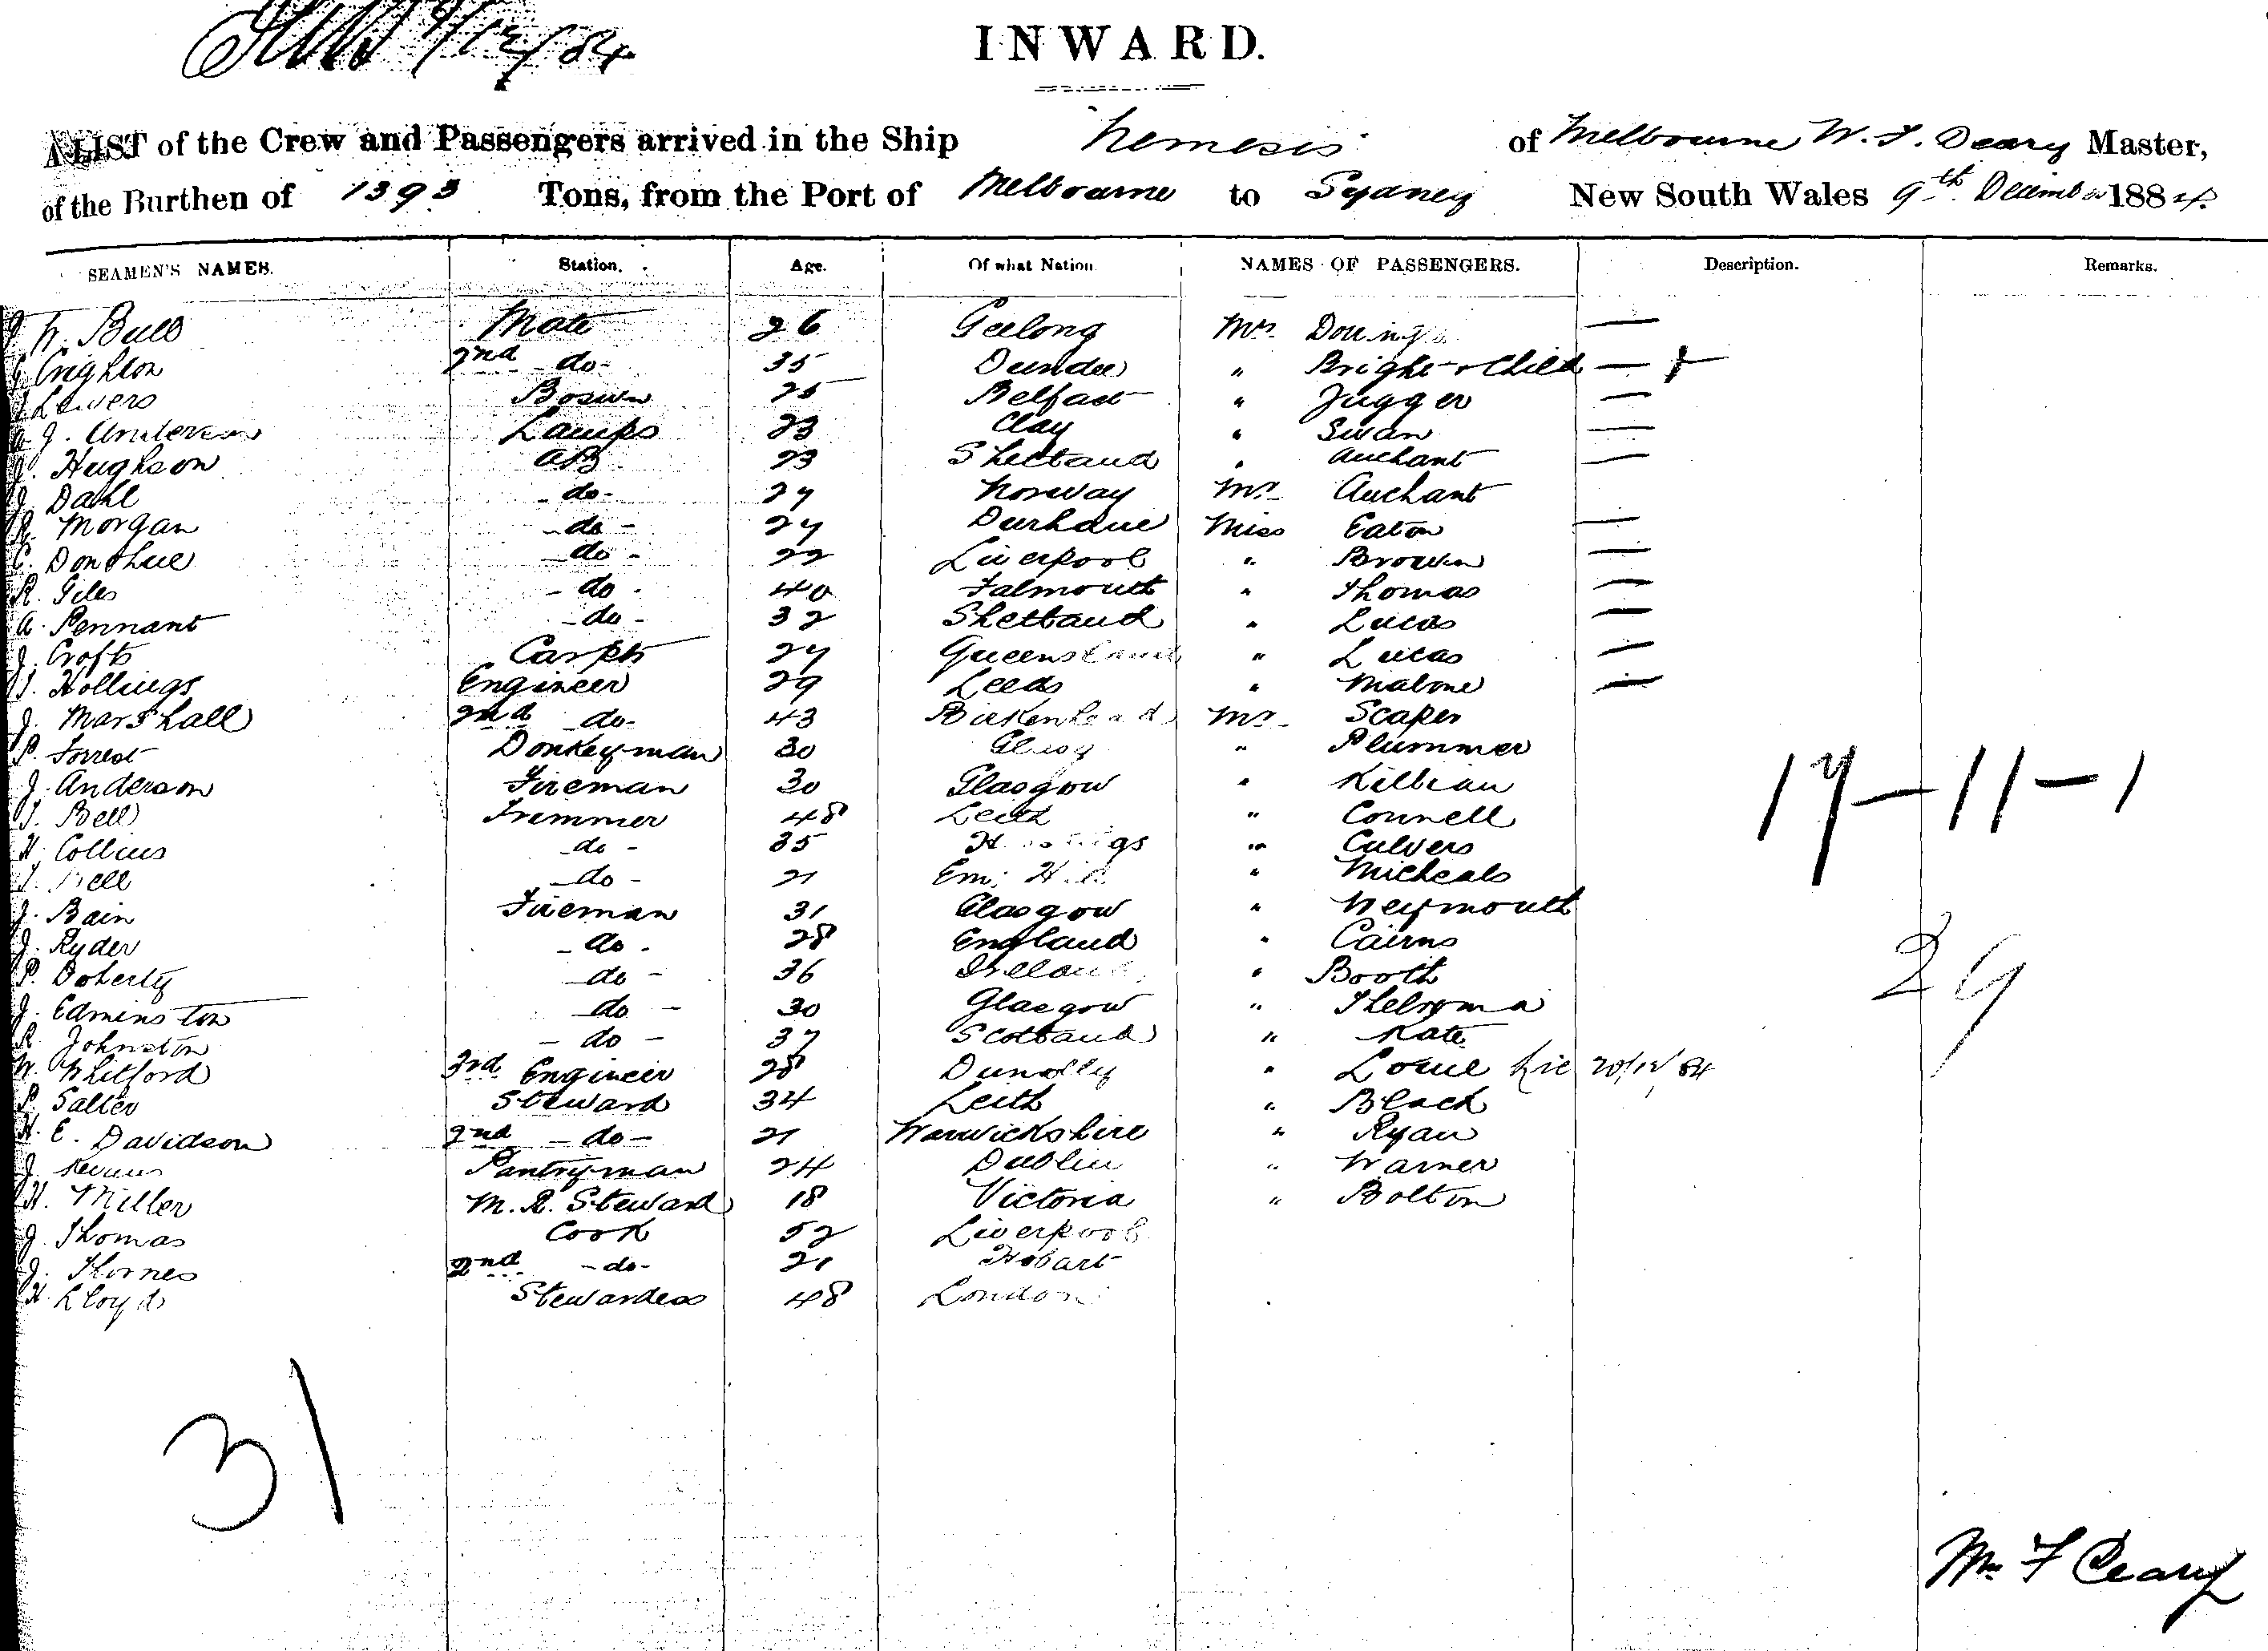 9/12/84
INWARD.
A LIST of the Crew and Passengers arrived in the Ship Nemesis of Melbourne W. F. Deary Master,
of the Burthen of 1393 Tons, from the Port of Melbourne to Sydney New South Wales 9th December 1884.
SEAMEN'S NAMES. Station. Age. Of what Nation. NAMES OF PASSENGERS. Description. Remarks.
Bull Mate 26 Geelong Mrs Douing —
Crighton 2nd do- 35 Dundee " Bright & Child —
Lewers Boswn 25 Belfast " Jugger —
J. Anderson Lamps 23 Clay " Swan —
J. Hughson AB 23 Shetland " Auchant —
J. Dahl - do- 27 Norway Mr Auchant
R. Morgan - do - 27 Durham Miss Eaton —
C. Donohue - do - 22 Liverpool " Brown —
R. Giles - do - 40 Falmouth " Thomas —
A. Pennant - do - 32 Shetland " Lucas —
J. Crofts Carptr 27 Queensland " Lucas —
J. Hollings Engineer 29 Leeds " Malone —
J. Marshall 2nd do- 43 Birkenhead Mr Scaper
P. Forrest Donkeyman 30 " Plummer
J. Anderson Fireman 30 Glasgow " Killian
J. Bell Trimmer 48 Leith " Connell
H. Collins - do - 35 " Culvers
J. Bell - do - 21 " Micheals
J. Bain Fireman 31 Glasgow " Weymouth
J. Ryder - do - 28 England " Cairns
P. Doherty - do - 36 Ireland " Booth
J. Edminston - do - 30 Glasgow "
R. Johnston - do - 37 Scotland " Kate
W. Whitford 3rd Engineer 28 Dunolly " 20/12/84
P. Salter Steward 34 Leith " Black
H. E. Davidson 2nd - do - 21 Warwickshire " Ryan
J. Pantryman 24 Dublin " Warner
H. Miller M. R. Steward 18 Victoria " Bolton
J. Thomas Cook 52 Liverpool
J. Thornes 2nd - do- 21 Hobart
H. Lloyd Stewardess 48 London
17-11-1
29
31
Wm F Deary